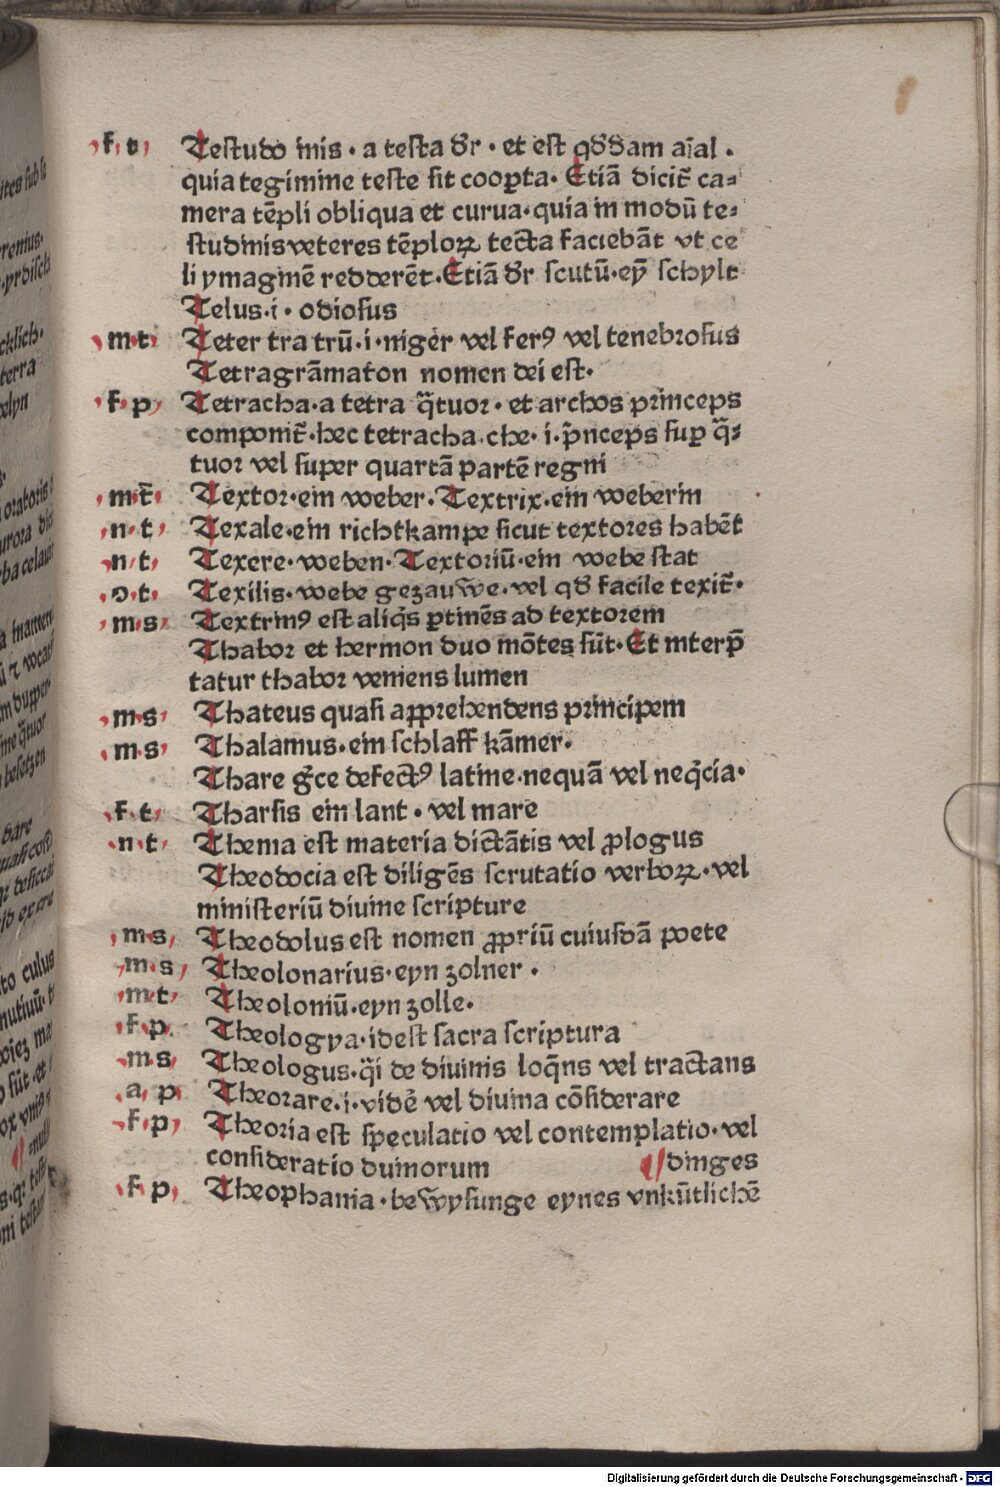 f t Testudo inis · a testa dr̄ · et est qddam aīal ·
quia tegimine teste sit coopta · Etiā dicit̄ ca⸗
mera tēpli obliqua et curua · quia in modū te⸗
studinis veteres tēploꝝ tecta faciebāt vt ce
li ymaginē redderēt · Etiā dr̄ scutū · eȳ schylt
Telus · i · odiosus
m t Teter tra trū · i · niger vel ferꝰ vel tenebrosus
Tetragrāmaton nomen dei est ·
f p Tetracha · a tetra q̄tuor · et archos princeps
componit̄ · hec tetracha che · i · p̄nceps suꝑ q̄⸗
tuor vel super quartā partē regni
m t̄ Textor · ein weber · Textrix · ein weberin
n t Texale · ein richtkampe sicut textores habēt
n t Texere · weben · Textoriū · ein webe stat
o t Texilis · webe gezauwe · vel qd facile texit̄ ·
m s Textrinꝰ est aliq̄s ꝑtinēs ad textorem
Thabor et hermon duo mōtes sūt · Et interp̄
tatur thabor veniens lumen
m s Thateus quasi apprehendens principem
m s Thalamus · ein schlaff kāmer ·
Thare gͬce defectꝰ latine · nequā vel neq̄cia ·
f t Tharsis ein lant · vel mare
n t Thema est materia dictātis vel ꝓlogus
Theodocia est diligēs scrutatio verboꝝ · vel
ministeriū diuine scripture
m s Theodolus est nomen ꝓpriū cuiusdā poete
m s Theolonarius · eyn zolner ·
m t Theoloniū · eyn zolle ·
f p Theologya · idest sacra scriptura
m s Theologus · q̄i de diuinis loq̄ns vel tractans
a p Theorare · i · vidē vel diuina cōsiderare
f p Theoria est speculatio vel contemplatio · vel
consideratio duinorum ¶ dinges
f p Theophania · bewysunge eynes vnkūtlichē
Digitalisierung gefördert durch die Deutsche Forschungsgemeinschaft - DFG